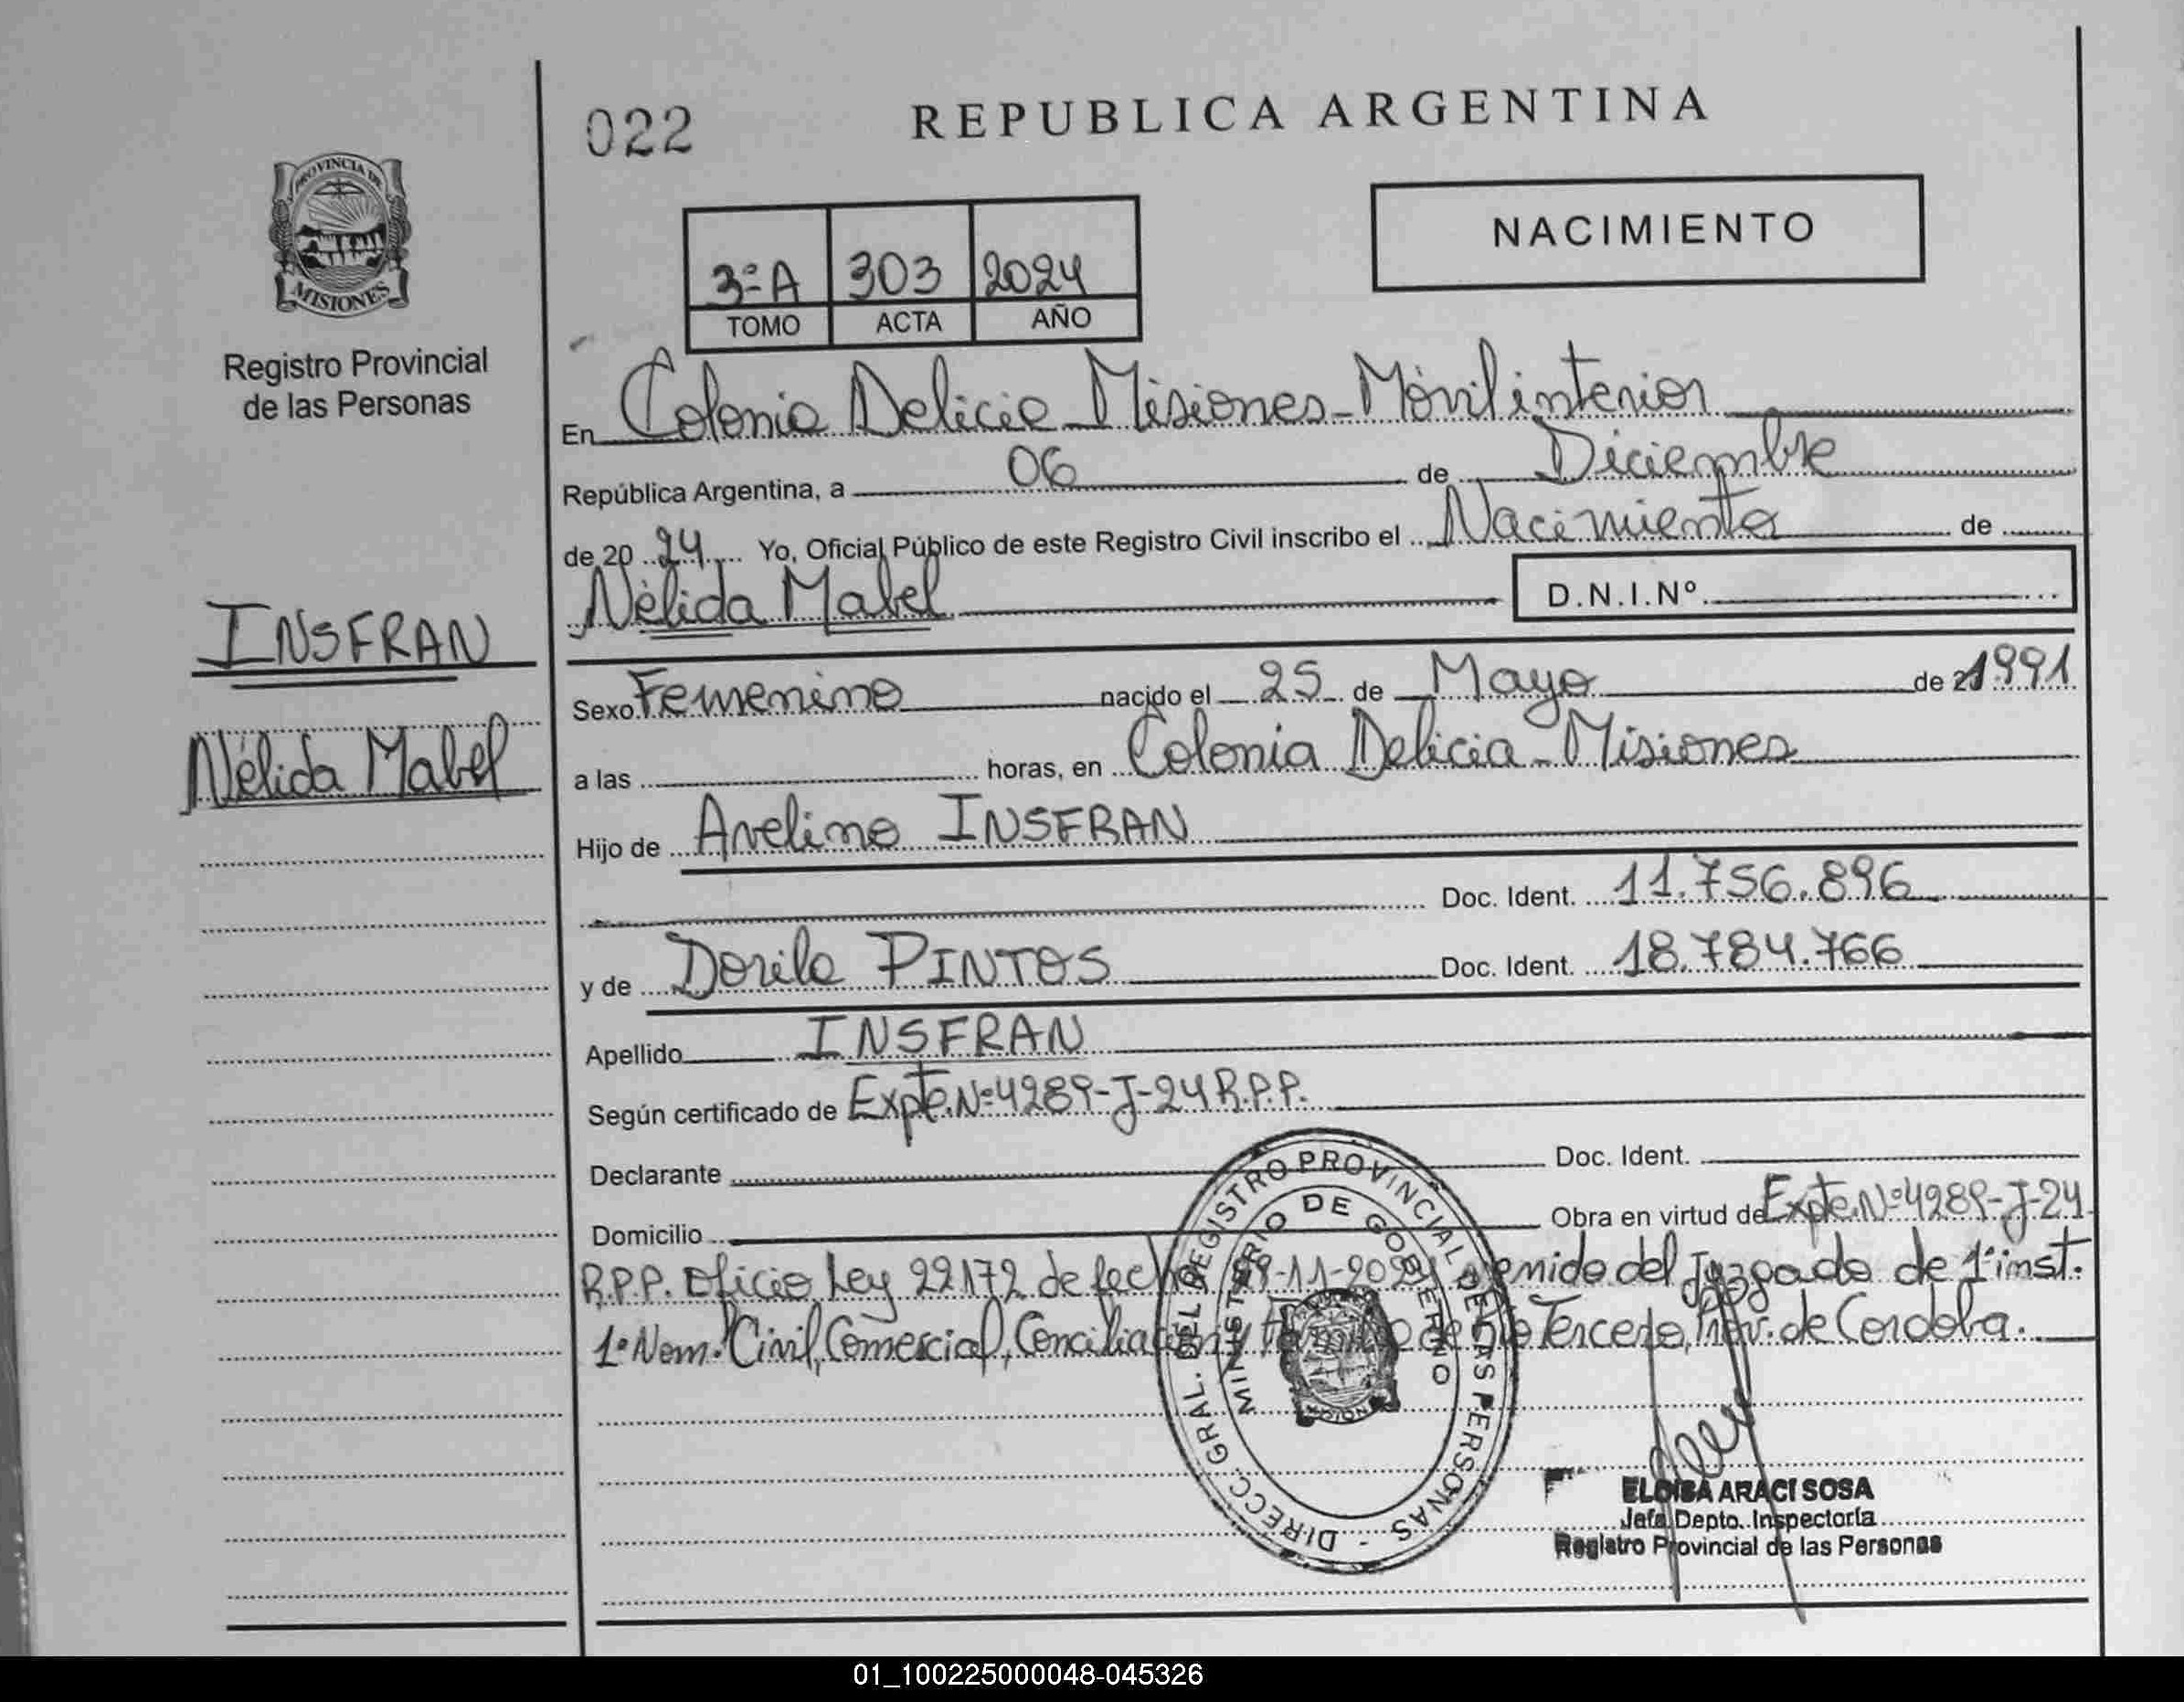 022
REPUBLICA ARGENTINA
PROVINCIA DE
MISIONES
Registro Provincial
de las Personas
3ºA 303 2024
TOMO ACTA AÑO
NACIMIENTO
En Colonia Delicia Misiones - Móvil interior
República Argentina, a 06 de Diciembre
de 20 24 Yo, Oficial Público de este Registro Civil inscribo el Nacimiento de
Nélida Mabel D.N.I.Nº
INSFRAN
Nélida Mabel
Sexo Femenino nacido el 25 de Mayo de 1991
a las horas, en Colonia Delicia - Misiones
Hijo de Avelino INSFRAN
Doc. Ident. 11.756.896
y de Dorila PINTOS Doc. Ident. 18.784.766
Apellido INSFRAN
Según certificado de Expte. Nº 4289-J-24 R.P.P.
Declarante Doc. Ident.
Domicilio Obra en virtud de Expte. Nº 4289-J-24
R.P.P. Oficio Ley 22172 de fecha -11-2024 del Juzgado de 1º inst.
1º Nom. Civil, Comercial, Conciliación y Familia de Río Tercero, Prov. de Cordoba.
DIRECC. GRAL. DEL REGISTRO PROVINCIAL DE LAS PERSONAS -
MINISTERIO DE GOBIERNO
ELOISA ARACI SOSA
Jefa Depto. Inspectoría
Registro Provincial de las Personas
01_100225000048-045326